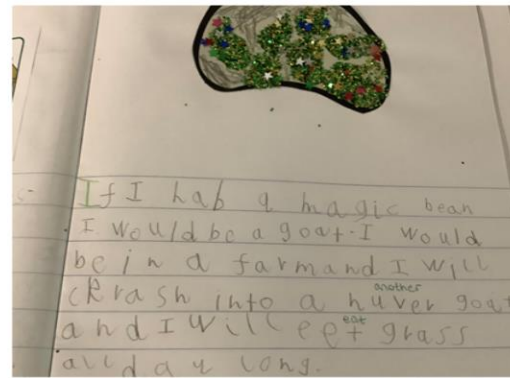 If I hab a magic bean
I would be a goat. I would
be in a farm and I will
cRrash into a huver goat
another
and I will eet grass
eat
all day long.